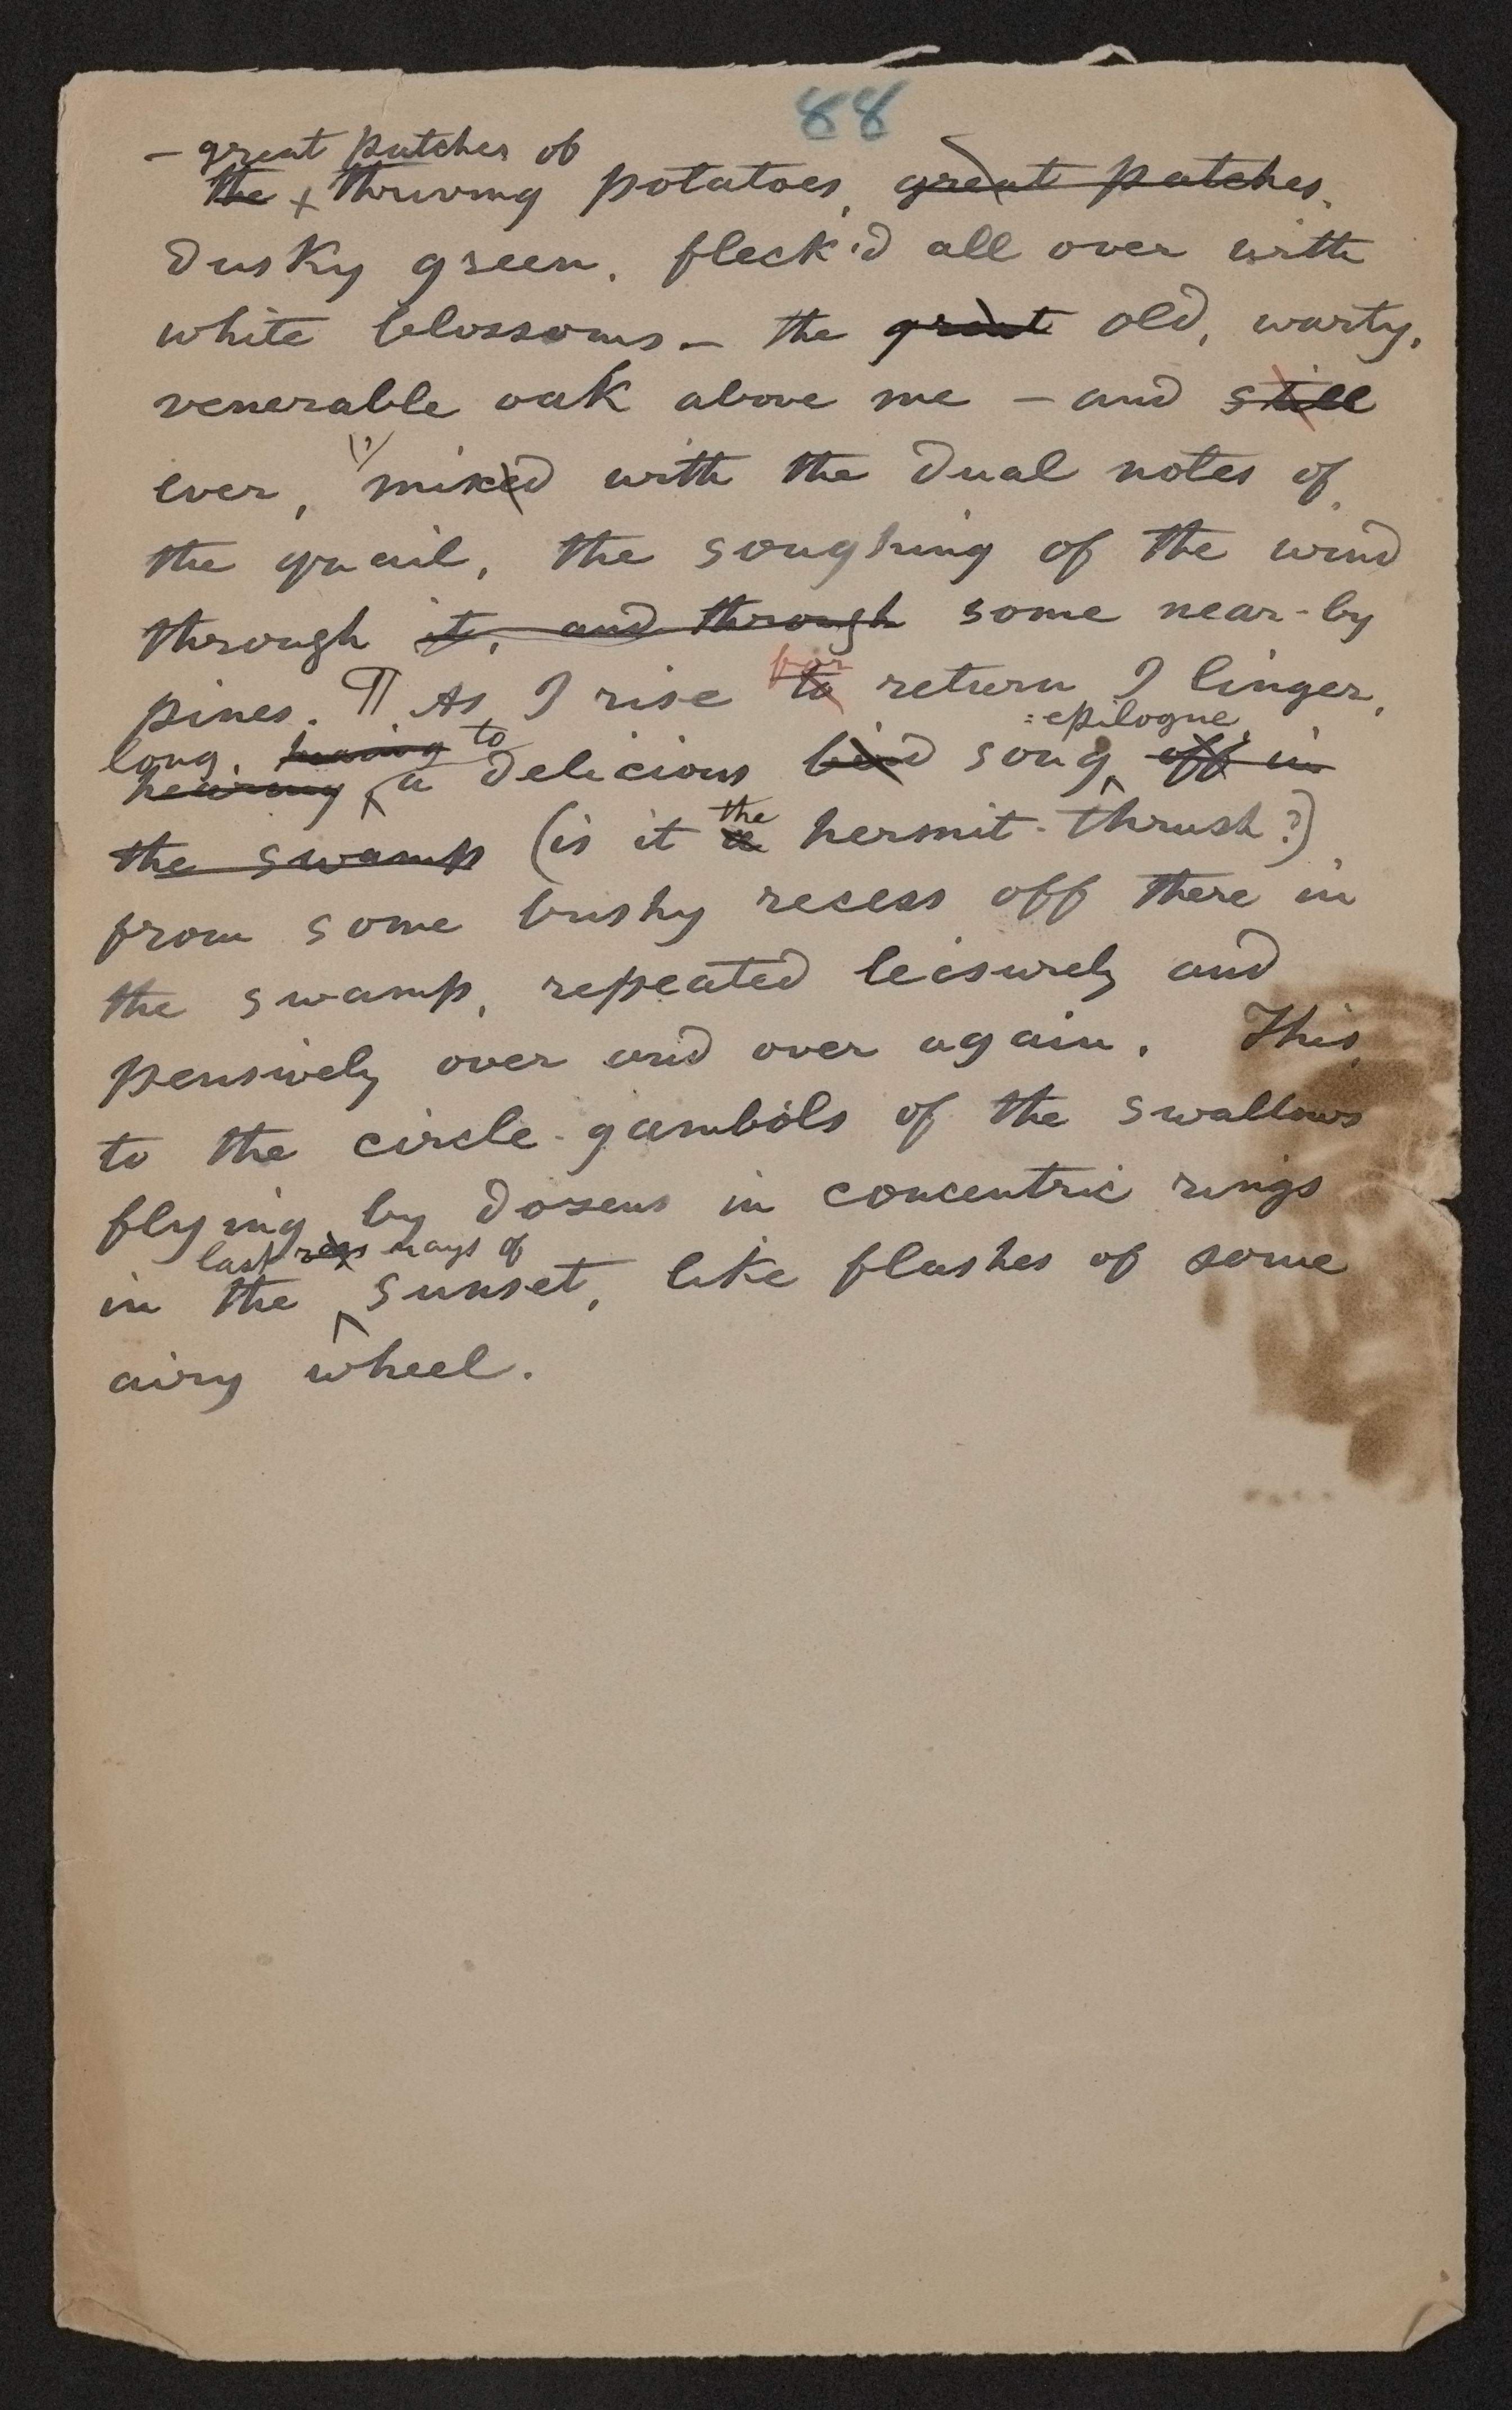 88
— great patches of
the thriving potatoes, great patches,
dusky green, fleck'd all over with
white blossoms — the great old, warty,
venerable oak above me — and still
ever, mixed with the dual notes of
the quail, the soughing of the wind
through it, and through some near-by
for
pines. ¶ As I rise to return I linger
long, hearing to :epilogue
hearing a delicious bird song off in
the
the swamp (is it a hermit-thrush?)
from some bushy recess off there in
the swamp, repeated leisurely and
pensively over and over again. This,
to the circle-gambols of the swallows
flying by dozens in concentric rings
last rays of
in the sunset, like flashes of some
airy wheel.